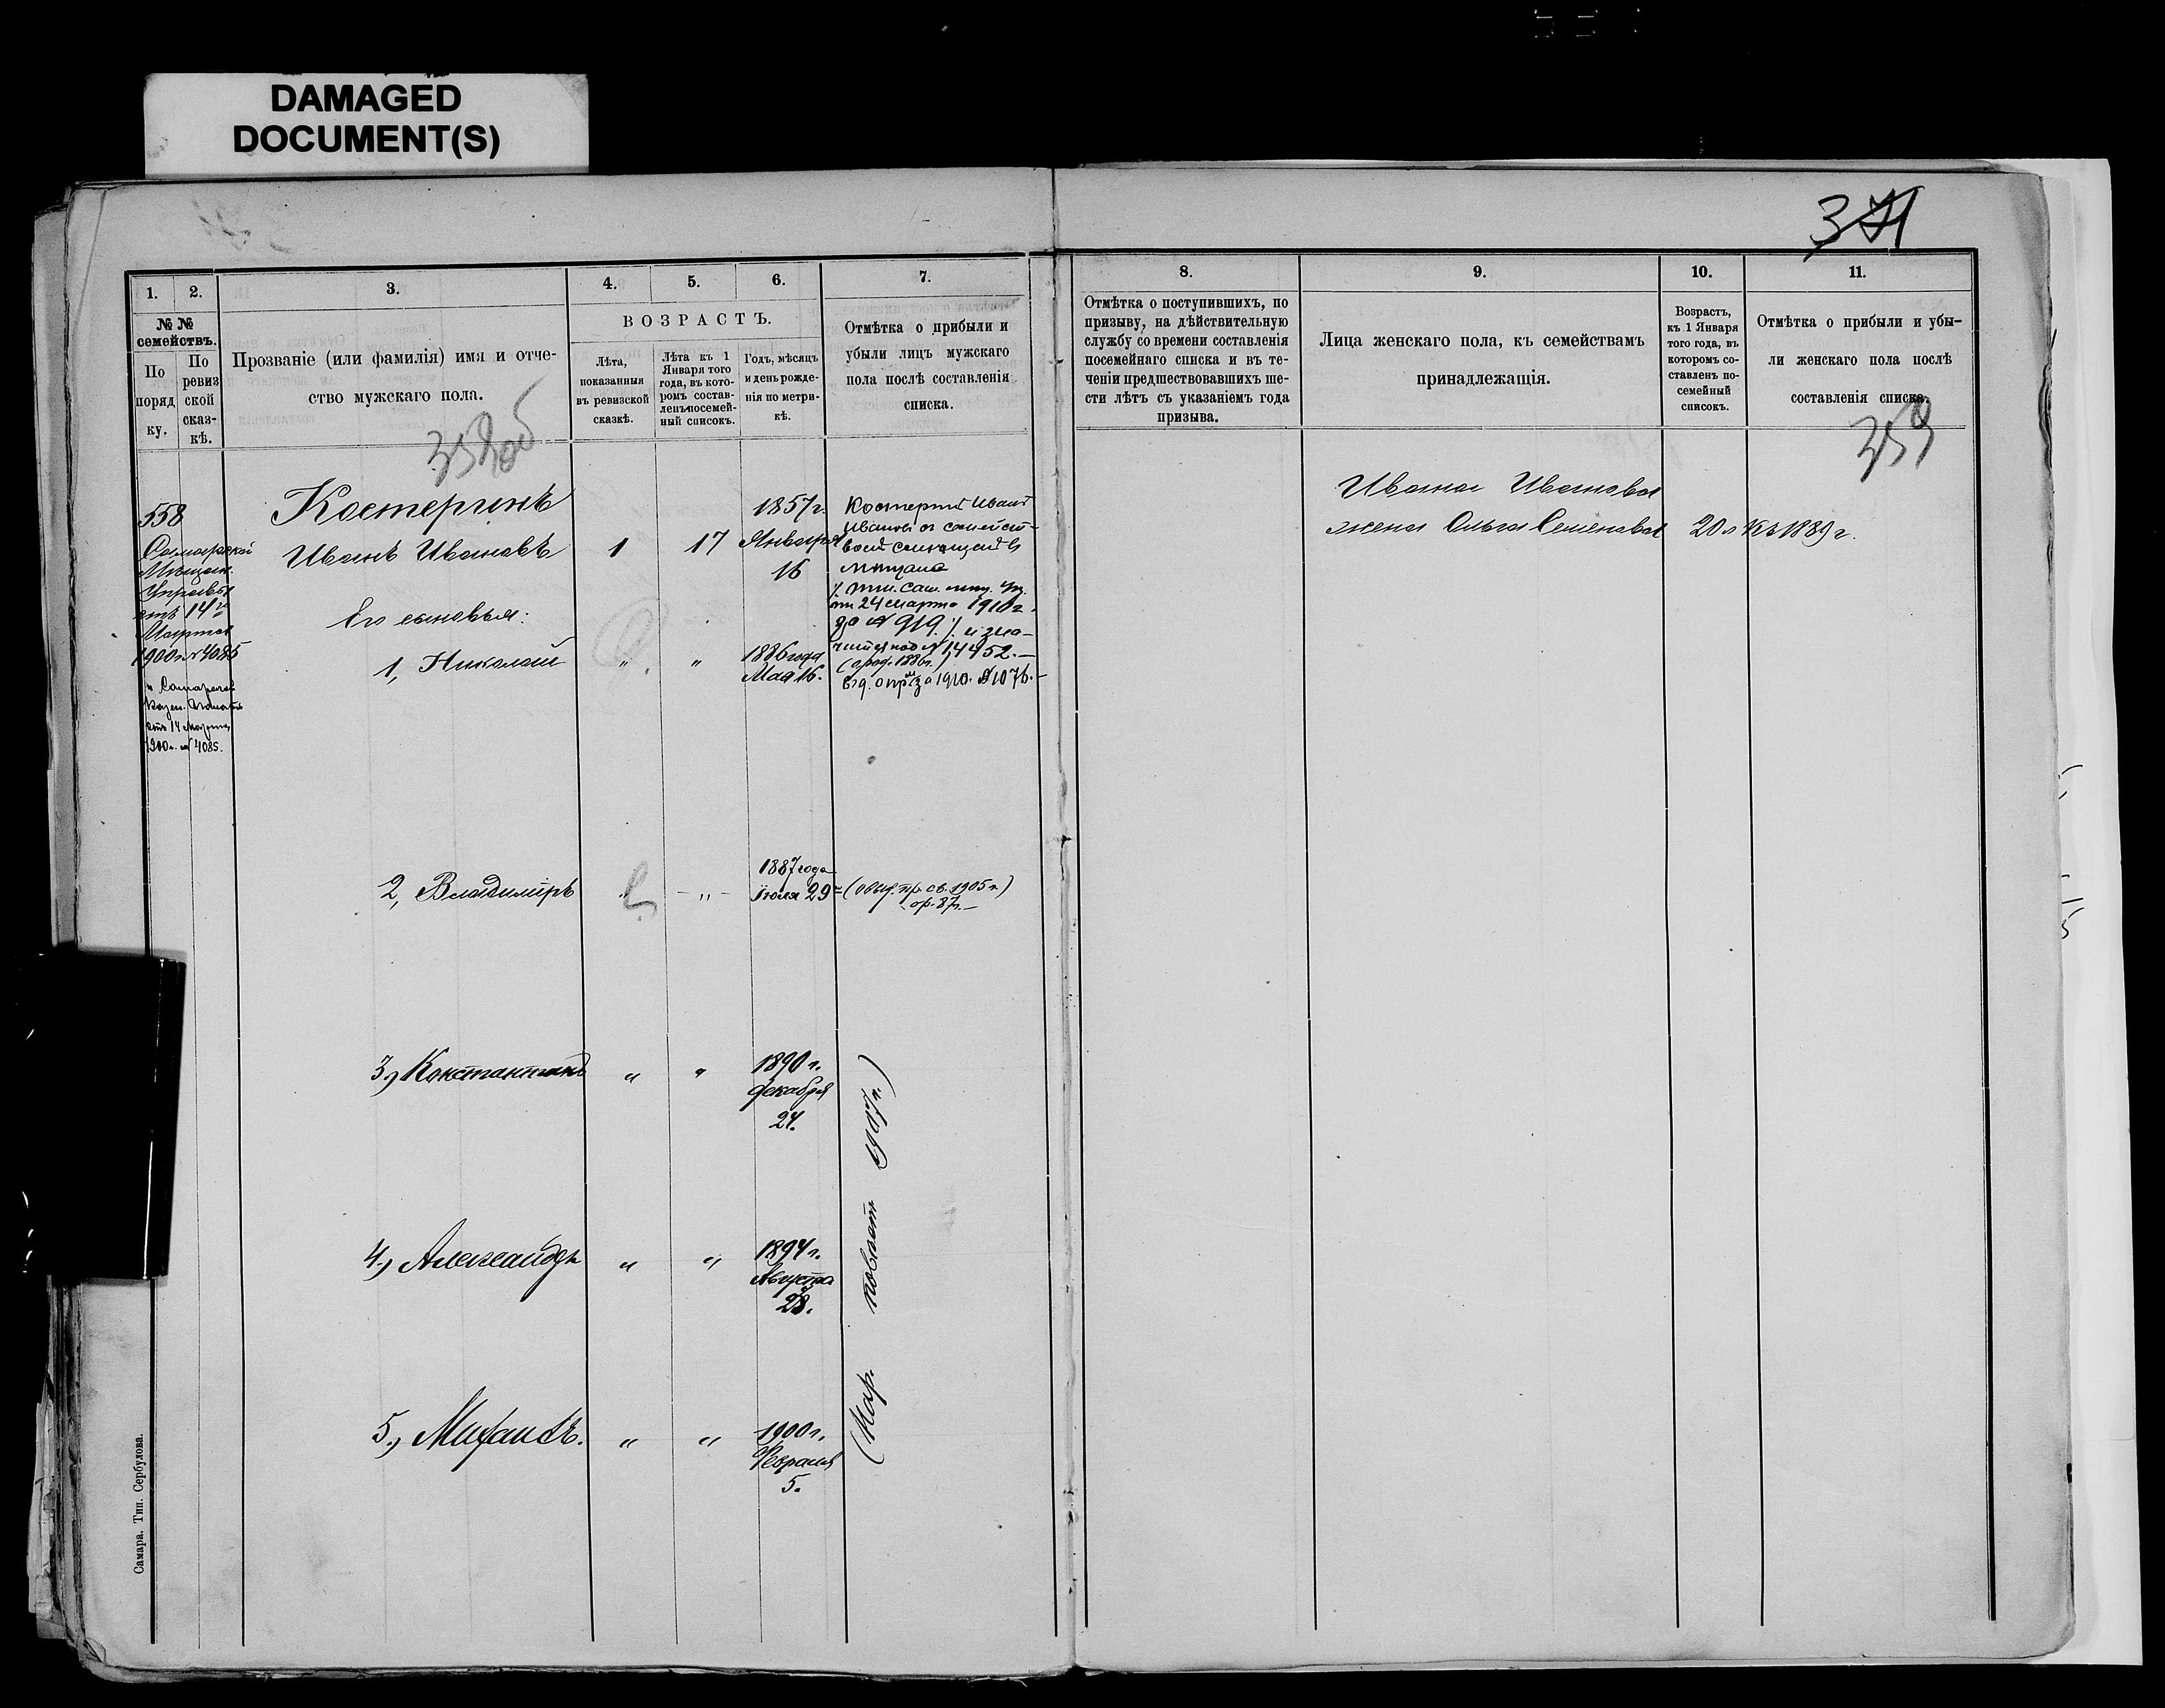 DAMAGED
DOCUMENT(S)
371
1.
2.
3.
4.
5.
6.
7.
№ №
семействъ.
По
поряд
ку.
По
ревиз
ской
сказ-
кѣ.
Прозваніе (или фамилія) имя и отче-
ство мужскаго пола.
ВОЗРАСТЪ.
Лѣта,
показанныя
въ ревизской
сказкѣ.
Лѣта къ 1
Января того
года, въ кото-
ромъ состав-
ленъ посемей-
ный списокъ.
Годъ, мѣсяцъ
и день рожде-
нія по метри-
кѣ.
Отмѣтка о прибыли и
убыли лицъ мужскаго
пола послѣ составленія
списка.
358об
558
Самарской
Мѣщан.
Управы
отъ 14го
Марта
1900 г. № 4085
Казен.
отъ 14 Марта
1900 г. № 4085.
Костеринъ
Иванъ Ивановъ
1
17
1857 г.
Января
16
Костеринъ Иванъ
Ивановъ съ семейст-
вомъ
24 марта 1910 г.
за № 919
№ 14452.
(о род. 1886 г.
за 1910. № 1076.
Его сыновья:
1, Николай
"
"
1886 года
Мая 16.
2, Владиміръ
"
1887 года
Іюля 29
(объ. пр. св. 1905 г.)
о р. 87 г.
3, Константинъ
"
"
1890 г.
декабря
24.
4, Александръ
"
"
1894 г.
Августа
28.
5, Михаилъ.
"
"
1900 г.
Февраля
5.
1917 г.)
Самара. Тип. Сербулова.
8.
9.
10.
11.
Отмѣтка о поступившихъ, по
призыву, на дѣйствительную
службу со времени составленія
посемейнаго списка и въ те-
ченіи предшествовавшихъ ше-
сти лѣтъ съ указаніемъ года
призыва.
Лица женскаго пола, къ семействамъ
принадлежащія.
Возрастъ,
къ 1 Января
того года, въ
которомъ со-
ставленъ по-
семейный
списокъ.
Отмѣтка о прибыли и убы-
ли женскаго пола послѣ
составленія списка.
359
Ивана Иванова
жена Ольга Семенова
20 л къ 1889 г.